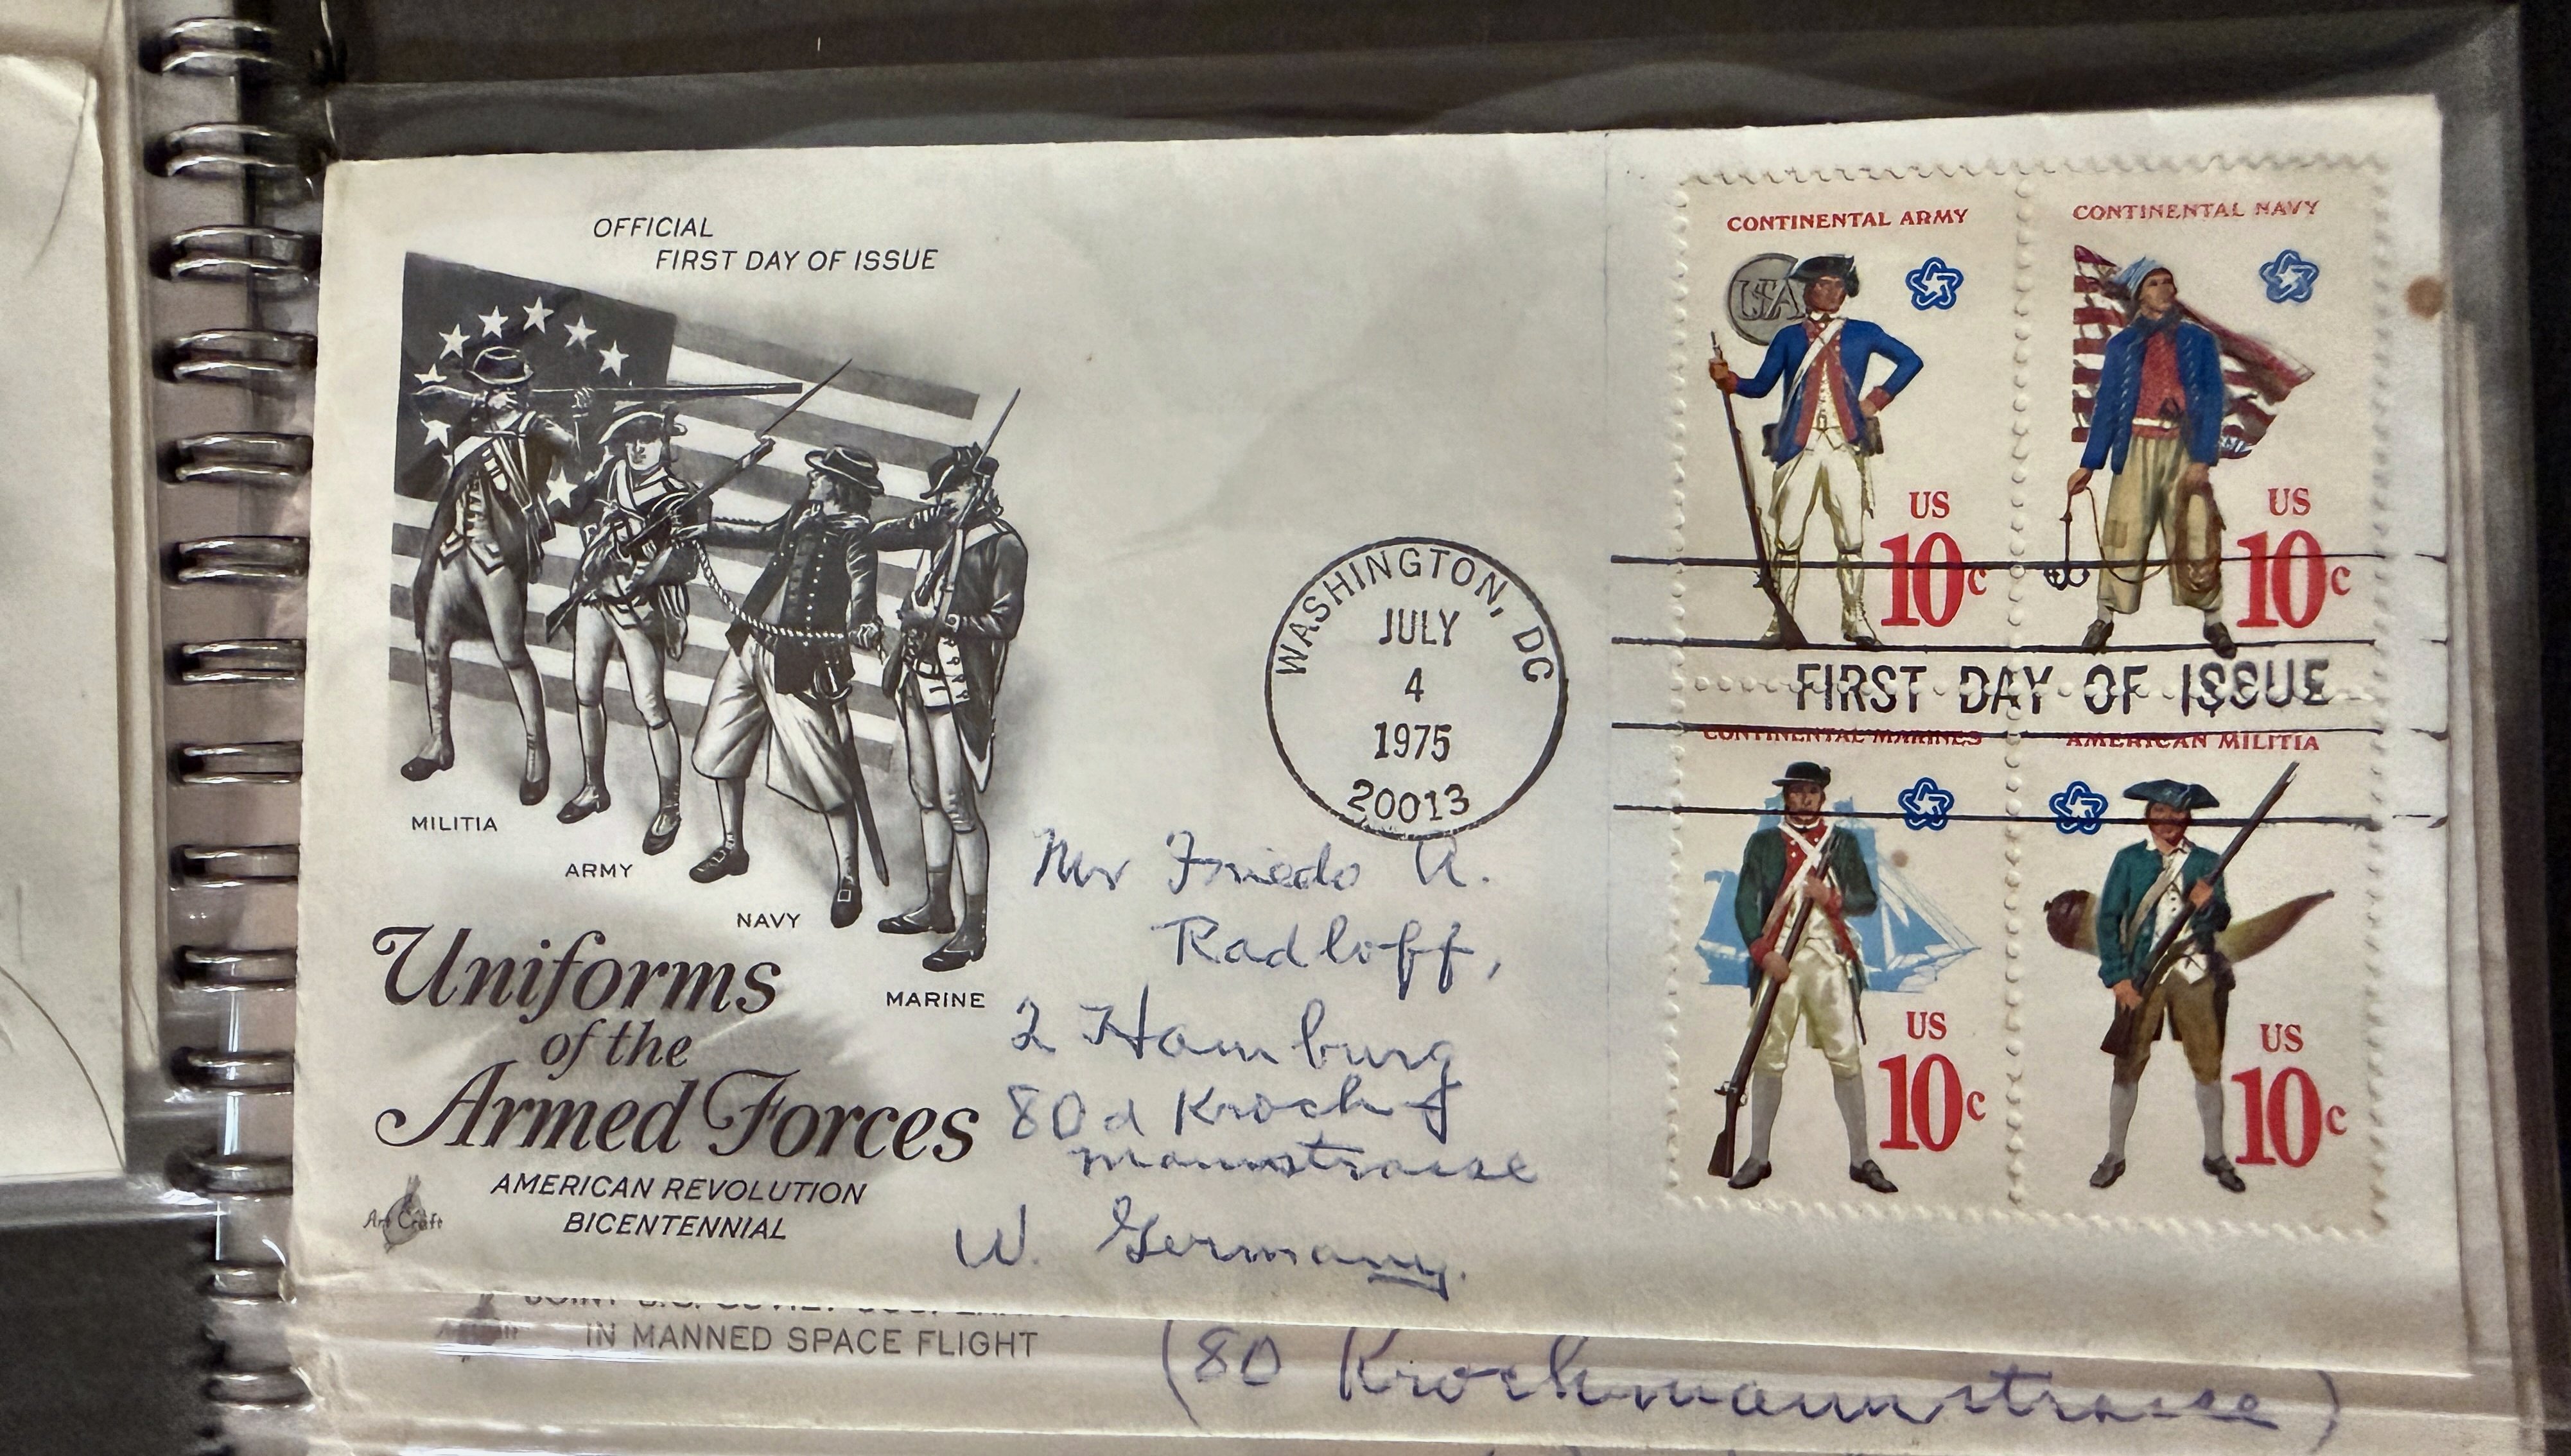 OFFICIAL
FIRST DAY OF ISSUE
MILITIA
ARMY
NAVY
MARINE
Uniforms
of the
Armed Forces
AMERICAN REVOLUTION
BICENTENNIAL
Art Craft
WASHINGTON, DC
JULY
4
1975
20013
Mr Friedo A.
Radloff,
2 Hamburg
80 d Kroch
mannstrasse
W. Germany.
CONTINENTAL ARMY
USA
US
10c
CONTINENTAL NAVY
US
10c
FIRST DAY OF ISSUE
CONTINENTAL MARINES
US
10c
AMERICAN MILITIA
US
10c
JOINT U.S. SOVIET
IN MANNED SPACE FLIGHT
(80 Krochmannstrasse)